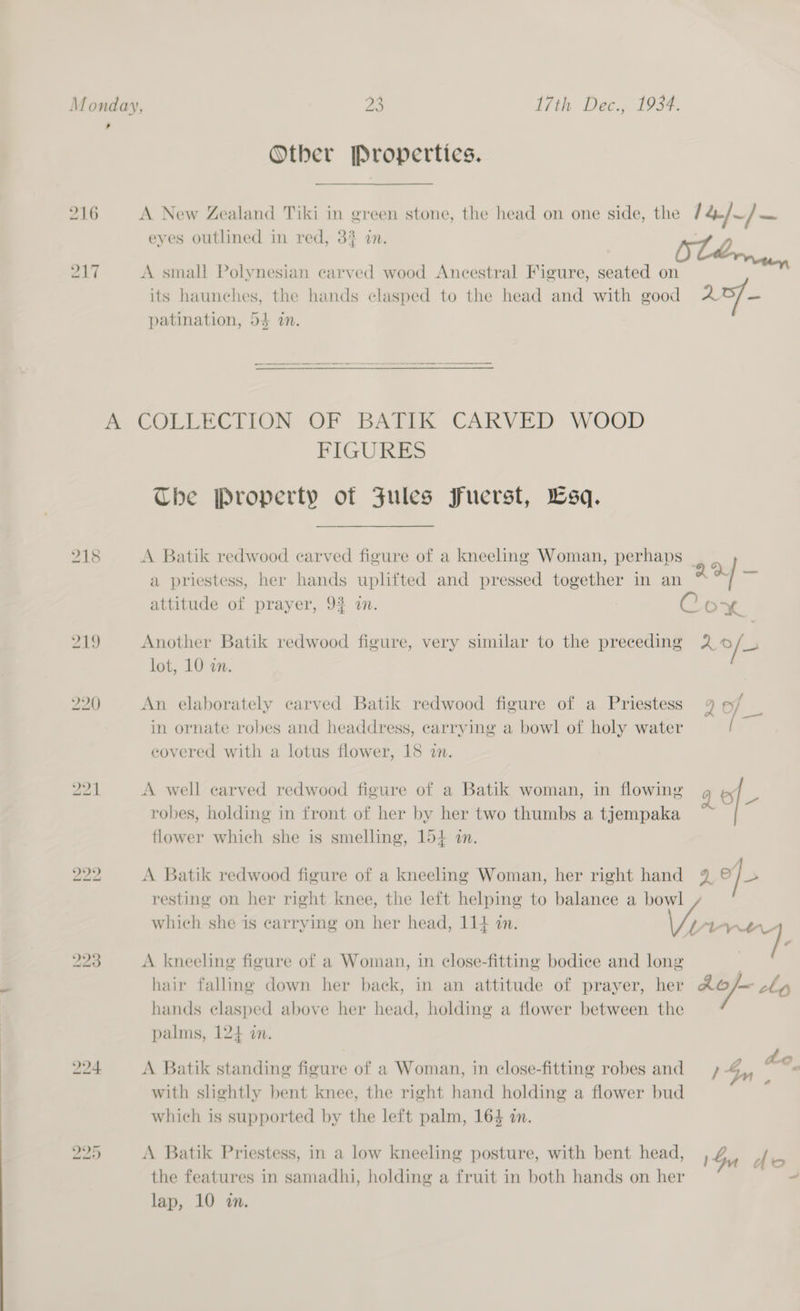 Monday, 23 17th Dec., 1934.
Other Properties.
216 A New Zealand Tiki in green stone, the head on one side, the 14/-/-
eyes outlined in red, 3¾ in.
217 A small Polynesian carved wood Ancestral Figure, seated on
its haunches, the hands clasped to the head and with good 25/-
patination, 5½ in.
A COLLECTION OF BATIK CARVED WOOD
FIGURES
The Property of Jules Fuerst, Esq.
218 A Batik redwood carved figure of a kneeling Woman, perhaps
a priestess, her hands uplifted and pressed together in an 22/-
attitude of prayer, 9¾ in. Cox
219 Another Batik redwood figure, very similar to the preceding 20/-
lot, 10 in.
220 An elaborately carved Batik redwood figure of a Priestess 20/-
in ornate robes and headdress, carrying a bowl of holy water
covered with a lotus flower, 18 in.
221 A well carved redwood figure of a Batik woman, in flowing 20/-
robes, holding in front of her by her two thumbs a tjempaka
flower which she is smelling, 15¼ in.
222 A Batik redwood figure of a kneeling Woman, her right hand 20/-
resting on her right knee, the left helping to balance a bowl
which she is carrying on her head, 11¼ in.
223 A kneeling figure of a Woman, in close-fitting bodice and long
hair falling down her back, in an attitude of prayer, her 20/- do
hands clasped above her head, holding a flower between the
palms, 12¼ in.
224 A Batik standing figure of a Woman, in close-fitting robes and 1 Gn do
with slightly bent knee, the right hand holding a flower bud
which is supported by the left palm, 16½ in.
225 A Batik Priestess, in a low kneeling posture, with bent head, 1 Gn do
the features in samadhi, holding a fruit in both hands on her
lap, 10 in.